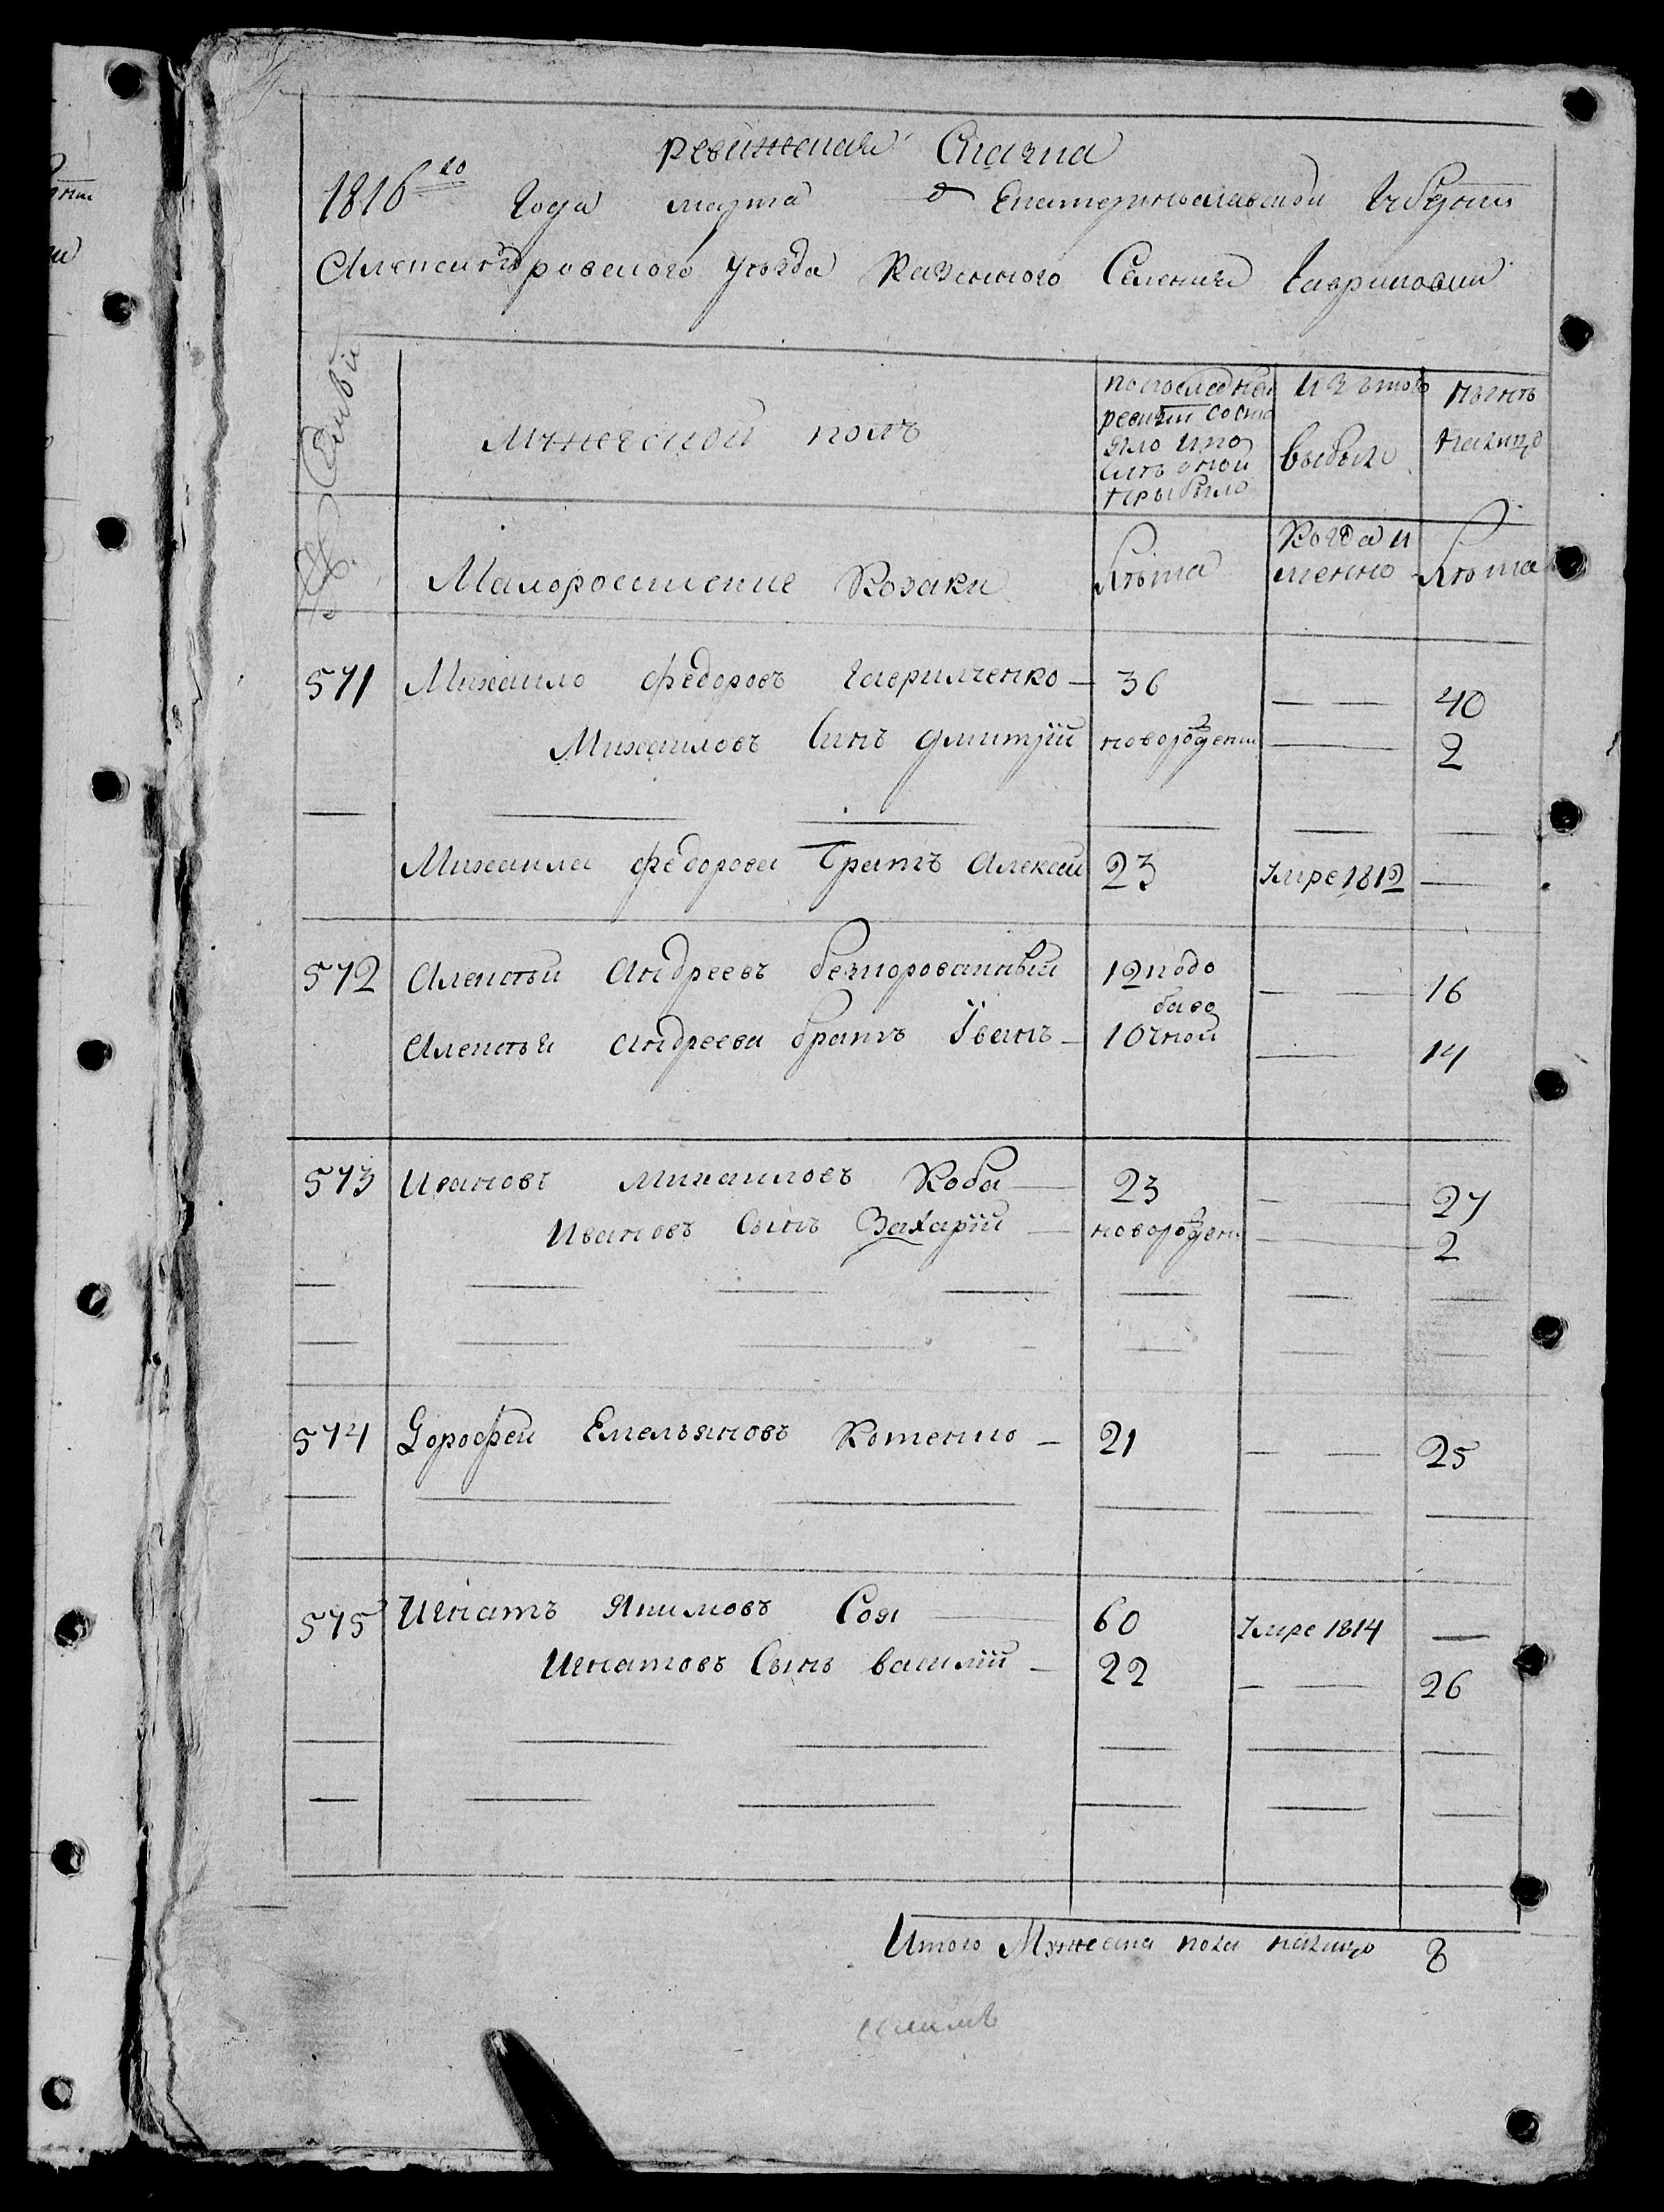 ревижская Сказка
1816го года марта д Екатеринославской губернии
Александровского уезда Казенного Селения Гавриловки
№ Семьи
Мужеской полъ
по последней ревизии состояло и после оной прибыло
Изъ того выбыло
ныне налицо
Малоросийские Козаки
Лѣта
Когда именно
Лѣта
571 Михаило Федоровъ Гаврилченко 36 — — 40
Михаиловъ Синъ Дмитрій новорожденн — 2
Михаила Федорова братъ Алексей 23 Умре 1812 —
572 Алексѣй Андреевъ безкорованный 12 подо — — 16
баво
Алексѣя Андреева братъ Іванъ 10 чной — — 14
573 Ивановъ Михаиловъ Коба 23 — — 27
Ивановъ Сынъ Захарій новорожден — 2
574 Дорофей Емельяновъ Котенко 21 — — 25
575 Игнатъ Якимовъ Соя 60 Умре 1814 —
Игнатовъ Сынъ василій 22 — — 26
Итого Мужеска пола налицо 8